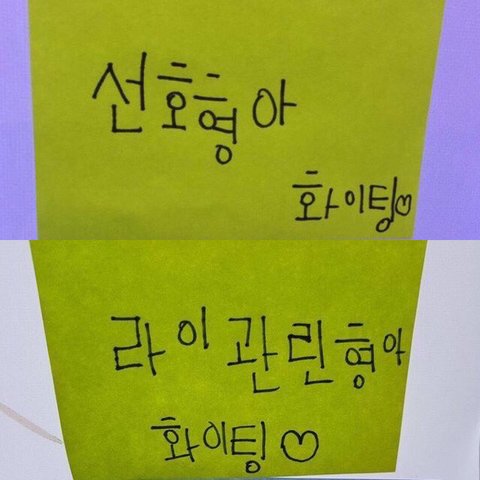 선호형아
화이팅♡
라이관린형아
화이팅♡